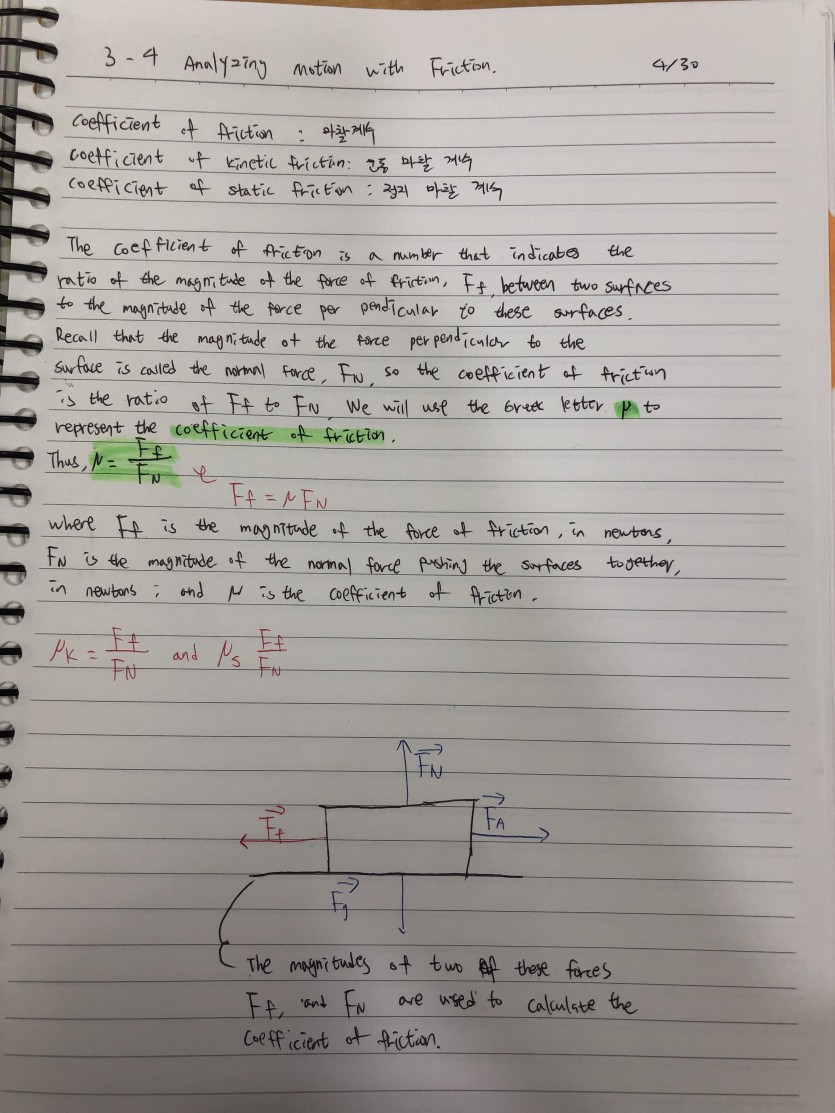 3-4 Analyzing motion with Friction. 4/30
Coefficient of friction : 마찰계수
coefficient of kinetic friction: 운동 마찰 계수
coefficient of static friction : 정지 마찰 계수
The coefficient of friction is a number that indicates the
ratio of the magnitude of the force of friction, Ff, between two surfaces
to the magnitude of the force per pendicular to these surfaces.
Recall that the magnitude of the force perpendicular to the
surface is called the normal force, FN, so the coefficient of friction
is the ratio of Ff to FN. We will use the Greek letter μ to
represent the coefficient of friction.
Thus, μ = Ff/FN
Ff = μFN
where Ff is the magnitude of the force of friction, in newtons,
FN is the magnitude of the normal force pushing the surfaces together,
in newtons ; and μ is the coefficient of friction.
μK = Ff/FN and μs Ff/FN
FN
Ff FA
Fg
The magnitudes of two of these forces
Ff, and FN are used to calculate the
coefficient of friction.